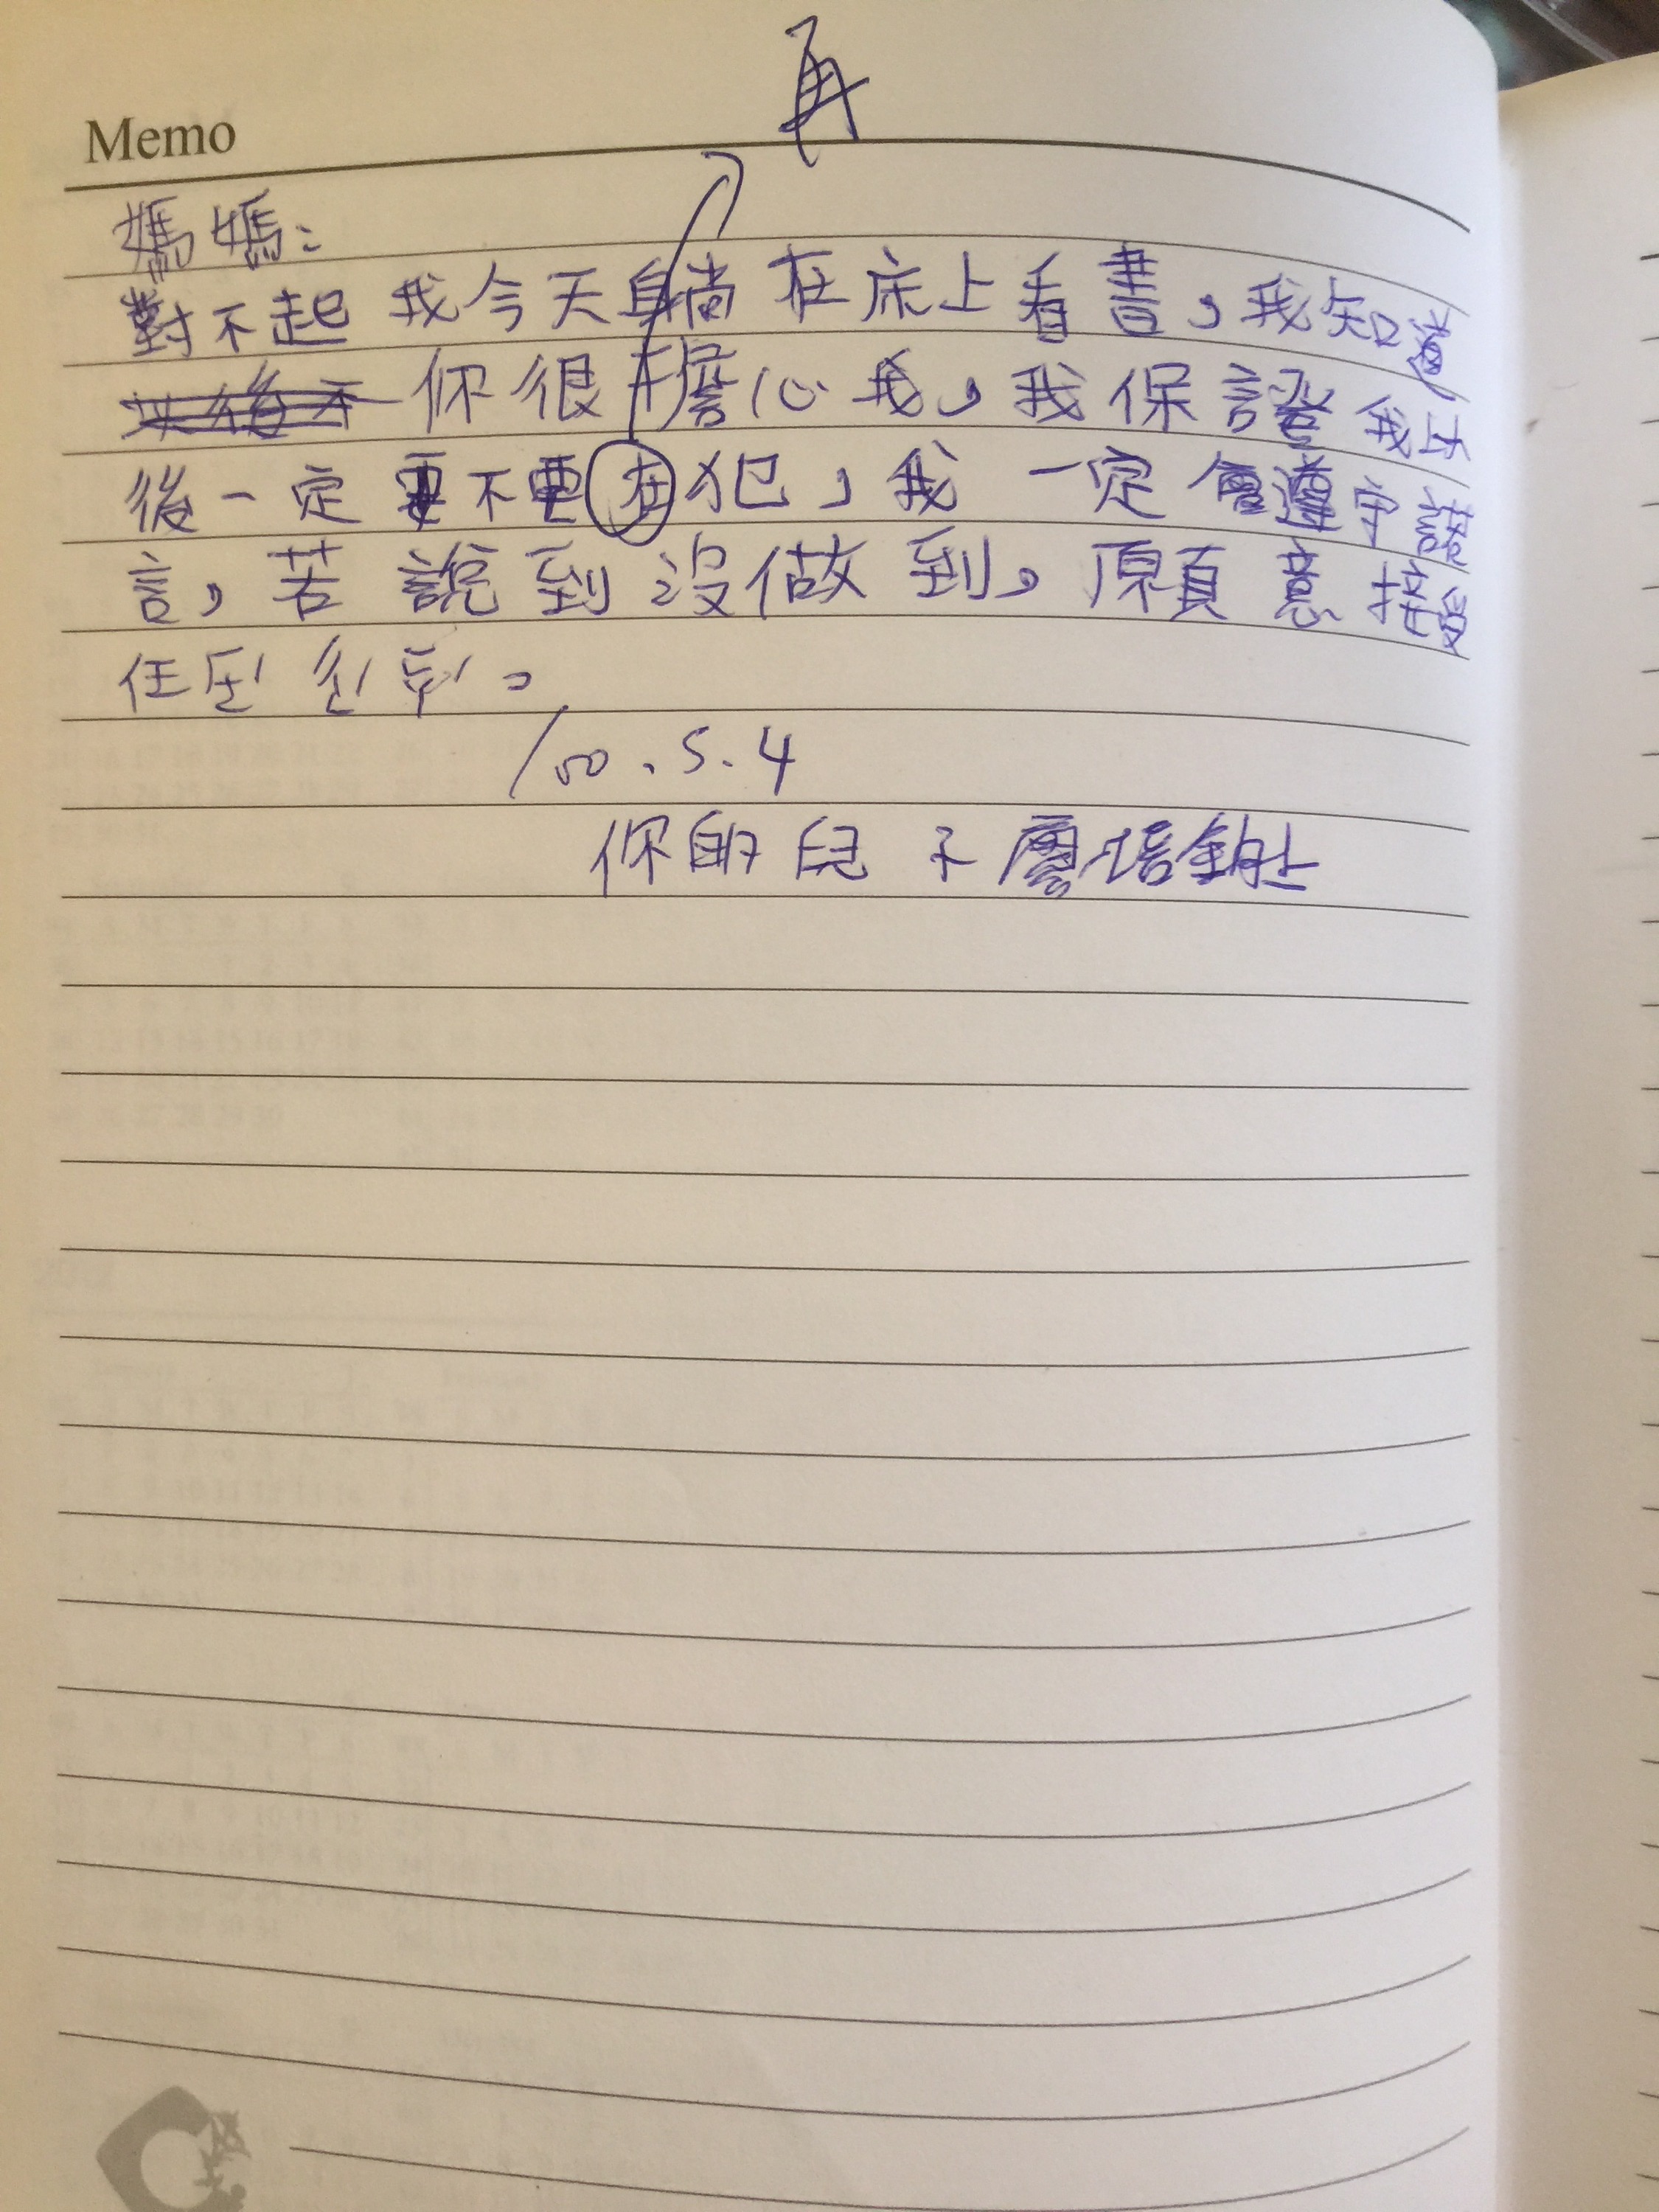 再
Memo
媽媽：
對不起 我今天躺在床上看書，我知道
以後不 你很擔心我，我保證我以
後一定要不要在犯，我一定會遵守諾
言，若說到沒做到，願意接受
任
100.5.4
你的兒子廖培